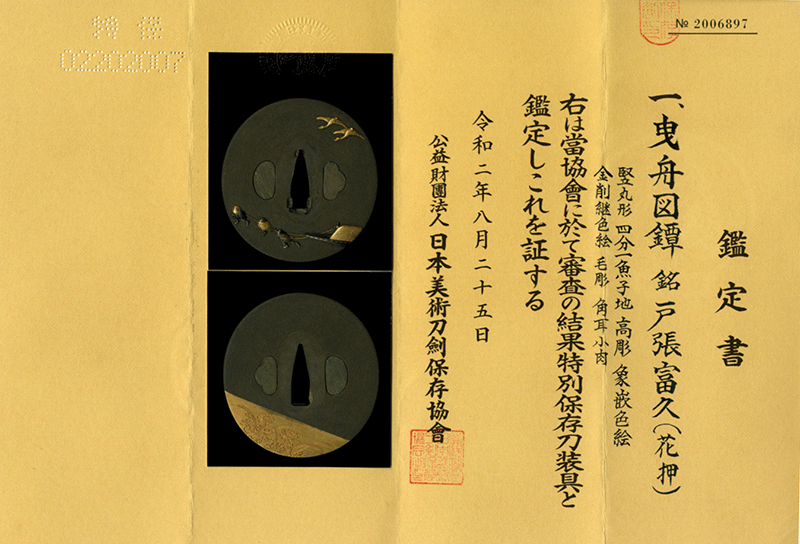 № 2006897
鑑定書
一、曳舟図鐔 銘 戸張富久(花押)
竪丸形 四分一魚子地 高彫 象嵌色絵
金削継色絵 毛彫 角耳小肉
右は當協會に於て審査の結果特別保存刀装具と
鑑定しこれを証する
令和二年八月二十五日
公益財團法人 日本美術刀劍保存協會
特保
02202007